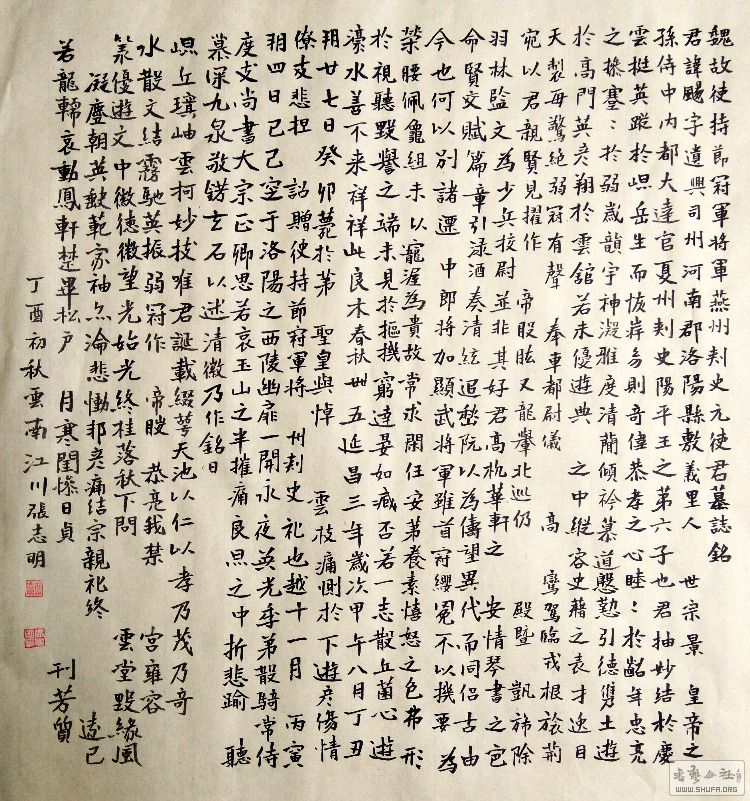 魏故使持節冠軍將軍燕州刺史元使君墓誌銘
君諱颺字遺興司州河南郡洛陽縣敷義里人　世宗景　皇帝之
孫侍中內都大達官夏州刺史陽平王之第六子也君抽妙結於慶
雲挺英蹤於崐岳生而恢岸芻則奇偉恭孝之心睦：於齠年忠亮
之操蹇：於弱歲韻宇神凝雅度清簡傾衿慕道慇懃引德雋土遊
於高門英彥翔於雲館若未優遊典　之中縱容史籍之表才逸目
天製每驚絕弱冠有聲　奉車都尉儀　高　鸞駕臨戎根旅荊
宛以君親賢見擢作　帝股肱又龍轝北巡仍　殿暨　凱旆除
羽林監文為少兵校尉　並非其好君高枕華軒之　安情琴書之
命賢交賦篇章引淥酒奏清絃追嵇阮以為儔望異代而同侶古由
今也何以別諸遷　中郎將加顯武將軍雖首冠纓冕不以機要　為
榮腰佩龜組未以寵渥為貴故　常求閑任安苐養素憘怒之色弗形
於視聽毀譽之端未見於樞機窮達晏如臧否若一志散丘菌心遊
濠水善不来祥此良木春秋卌五延昌三年歲次甲午八月丁丑
朔廿七日癸　卯薨於第　聖皇與悼　雲枝痛惻於　下遊彥傷情
僚友悲担　詔贈使持節冠軍將　州刺史　礼也越十一月　丙寅
朔四日己巳空于洛陽之西陵幽扉一開永夜英光季弟散騎常侍
度支尚書大宗正卿思若哀玉山之半摧痛良炰之中　折悲踰　聽
慕深九泉敬鐫玄石以述清徽乃作銘曰
崐丘瓌岫雲柯妙枝唯君誕載綴萼天池以仁以　孝乃茂乃奇
水散文結霧馳英振弱冠作　帝　恭亮我　宮雍容
優遊文中徽德徽望光始光終桂落秋下問　雲堂毀緣風
凝塵朝英　範家　淪悲慟邦彥痛結宗親礼終　遠已
若龍轜哀動鳳軒楚畢松戶　月寒閨　日貞　刊芳質
丁酉初秋雲南江川張志明
书艺公社
WWW.SHUFA.ORG